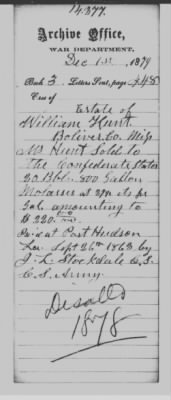 14.377.
Archive Office,
WAR DEPARTMENT,
Dec 1st, 1879
Book 3 Letters Sent, page 448
Case of
Estate of
William Hunt
Boliver Co. Miss
Mr Hunt Sold to
The Confederate States
20 Bbl. 800 Gallon
Molasses at 27½ cts pr
Gal. amounting to
$ 220.00
Paid at Port Hudson
Lou Sept 26th 1863 by
J. L. Stockdale
C. S. Army.
Disall'd
1878